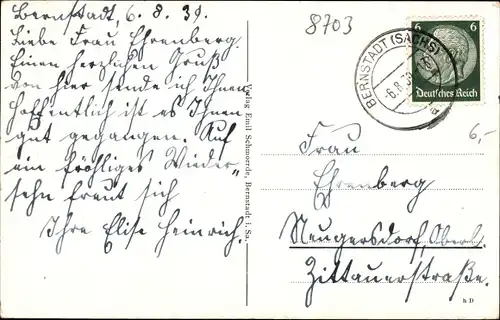 Bernstadt, 6. 8. 39.
Liebe Frau Ehrenberg.
Einen herzlichen Gruß
von hier sende ich Ihnen
Hoffentlich ist es Ihnen
gut gegangen. Auf
ein fröhliges Wieder-
sehn freut sich
Ihre Elise Heinrich.
Verlag Emil Schmoerde, Bernstadt i. Sa.
8703
BERNSTADT (SACHS)
-6.8.39
6 6
Deutsches Reich
6,-
Frau
Ehrenberg
Neugersdorf, Oberl.
Zittauerstraße.
h D